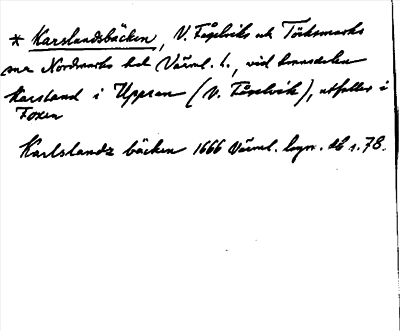 * Karslandsbäcken, V. Fågelviks och Töcksmarks
snr Nordmarks hd Värml. l., vid
Karsland i (V. Fågelvik), utfaller i
Foxen
Karlslandz bäcken 1666 Värml. db s. 78.